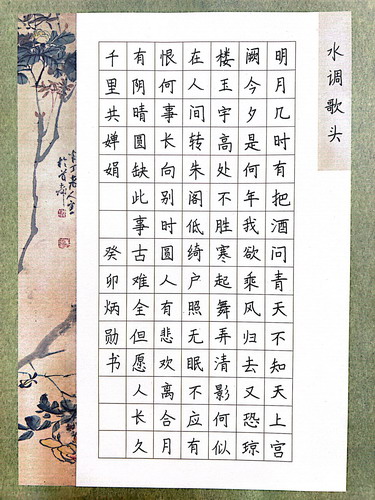 水调歌头
明月几时有把酒问青天不知天上宫
阙今夕是何年我欲乘风归去又恐琼
楼玉宇高处不胜寒起舞弄清影何似
在人间转朱阁低绮户照无眠不应有
恨何事长向别时圆人有悲欢离合月
有阴晴圆缺此事古难全但愿人长久
千里共婵娟
癸卯炳勋书